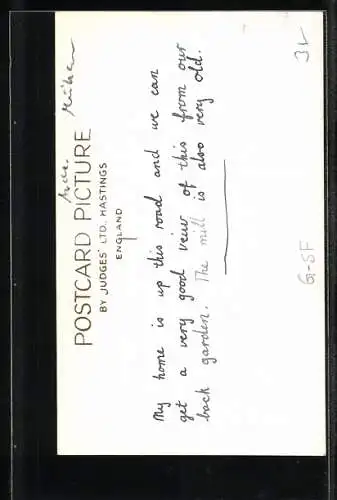 POSTCARD PICTURE
BY JUDGES' LTD. HASTINGS
ENGLAND
My home is up this road and we can
get a very good veiw of this from our
back garden. The mill is also very old.
G-SF